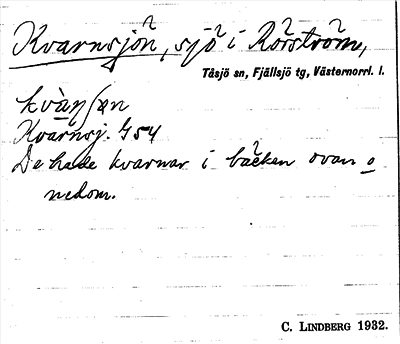 Kvarnsjön, sjö i Rörström,
Tåsjö sn, Fjällsjö tg, Västernorrl. l.
Kvarnsj. G 54
De hade kvarnar i bäcken ovan o
nedom.
C. LINDBERG 1932.